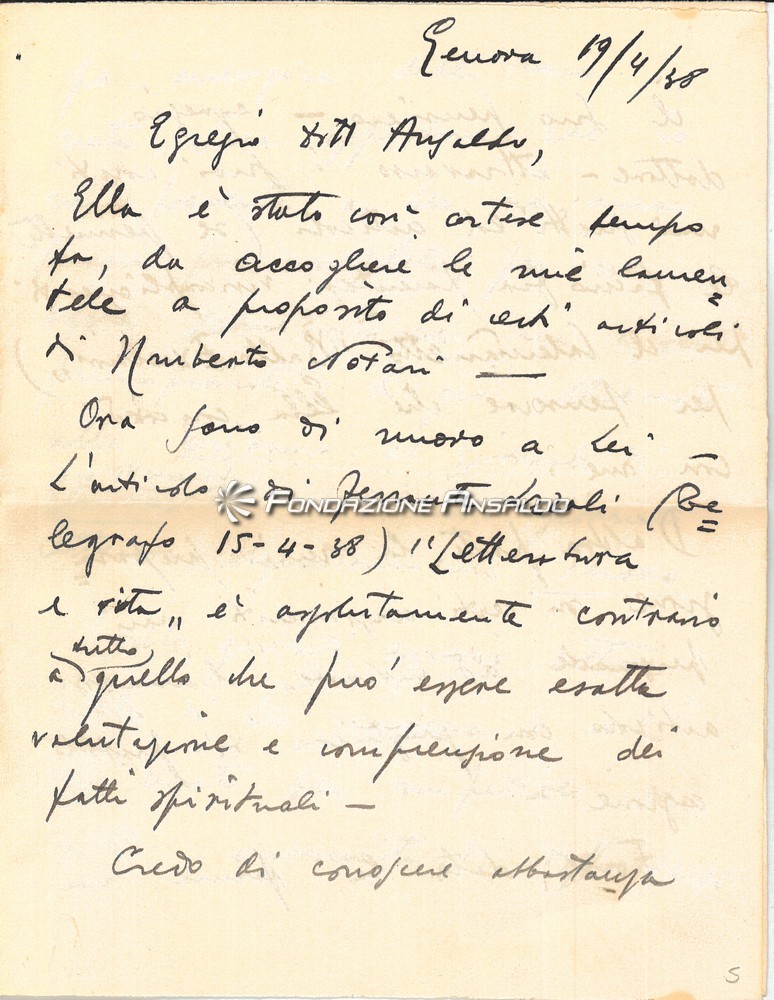 Genova 19/4/38
Egregio Dott Ansaldo,
Ella è stato così cortese tempo
fa, da accogliere le mie lamen=
tele a proposito di certi articoli
di Umberto Notari —
Ora sono di nuovo a Lei —
L'articolo di Azzali (Te=
FONDAZIONE ANSALDO
legrafo 15-4-38) "Letteratura
e vita" è assolutamente contrario
a tutto quello che può essere esatta
valutazione e comprensione dei
fatti spirituali —
Credo di conoscere abbastanza
5